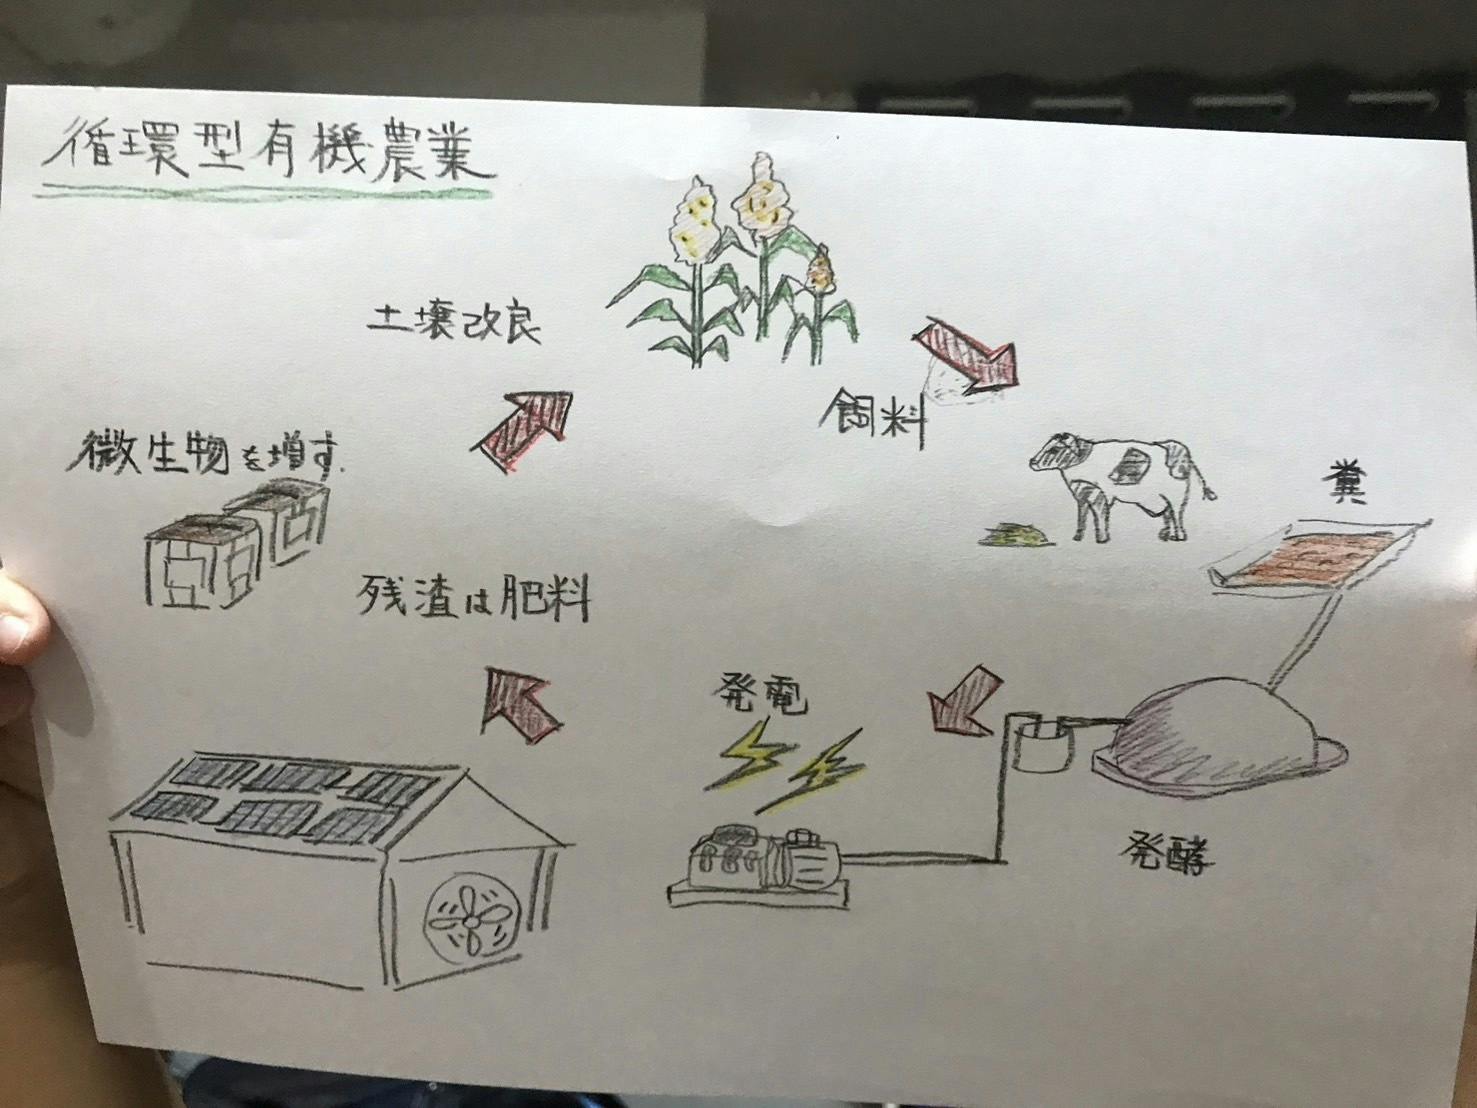 循環型有機農業
土壌改良
飼料
微生物を増す.
糞
残渣は肥料
発電
発酵